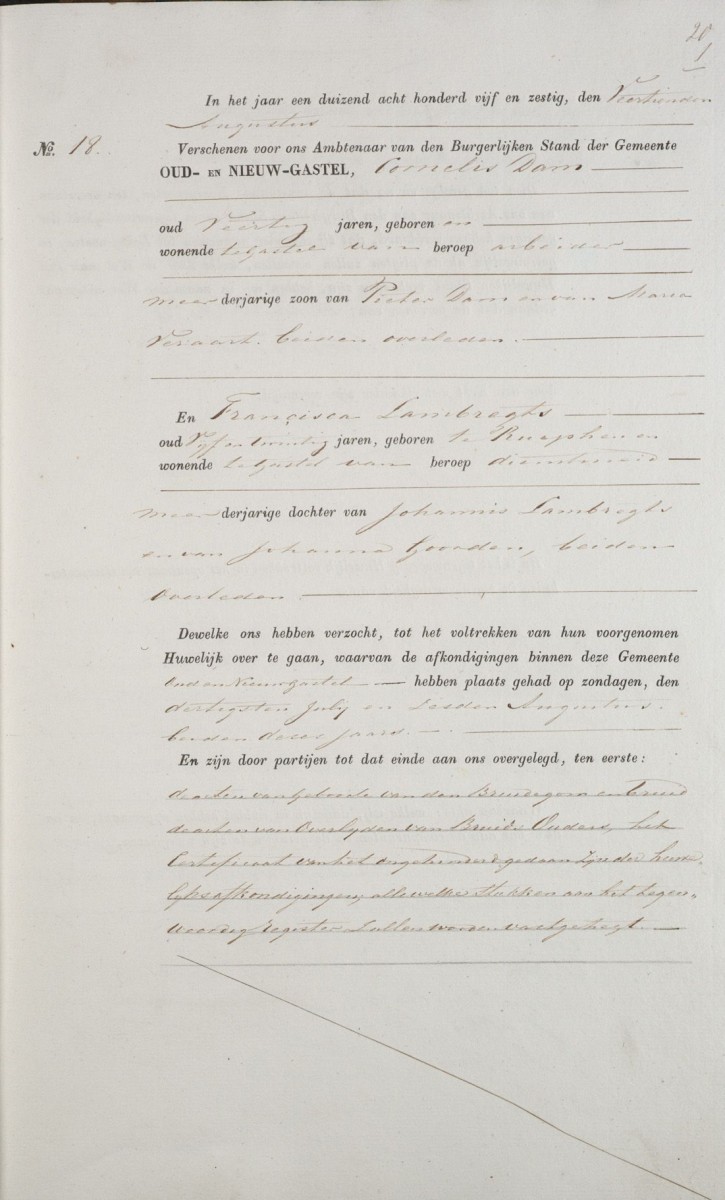 20
1
In het jaar een duizend acht honderd vijf en zestig, den Veertienden
Augustus
No. 18.
Verschenen voor ons Ambtenaar van den Burgerlijken Stand der Gemeente
OUD- EN NIEUW-GASTEL, Cornelis Dam
oud Veertig jaren, geboren en
wonende te Gastel van beroep arbeider
meer derjarige zoon van Pieter Dam en van Maria
beiden overleden.
En Francisca Lambregts
oud Vyf en twintig jaren, geboren te Rucphen en
wonende te Gastel van beroep dienstmeid
meer derjarige dochter van Johannis Lambregts
en van Johanna Goorden, beiden
overleden.
Dewelke ons hebben verzocht, tot het voltrekken van hun voorgenomen
Huwelijk over te gaan, waarvan de afkondigingen binnen deze Gemeente
Oud en Nieuw Gastel hebben plaats gehad op zondagen, den
dertigsten July en zesden Augustus
beiden dezes jaars.
En zijn door partijen tot dat einde aan ons overgelegd, ten eerste:
de acten van geboorte van den Bruidegom en bruid
de acten van Overlyden van Bruids Ouders, het
Certificaat van het ongehinderd gedaan zyn der huwe-
lyks afkondigingen, alle welke stukken aan het tegen-
woordig register zullen worden vastgehegt.